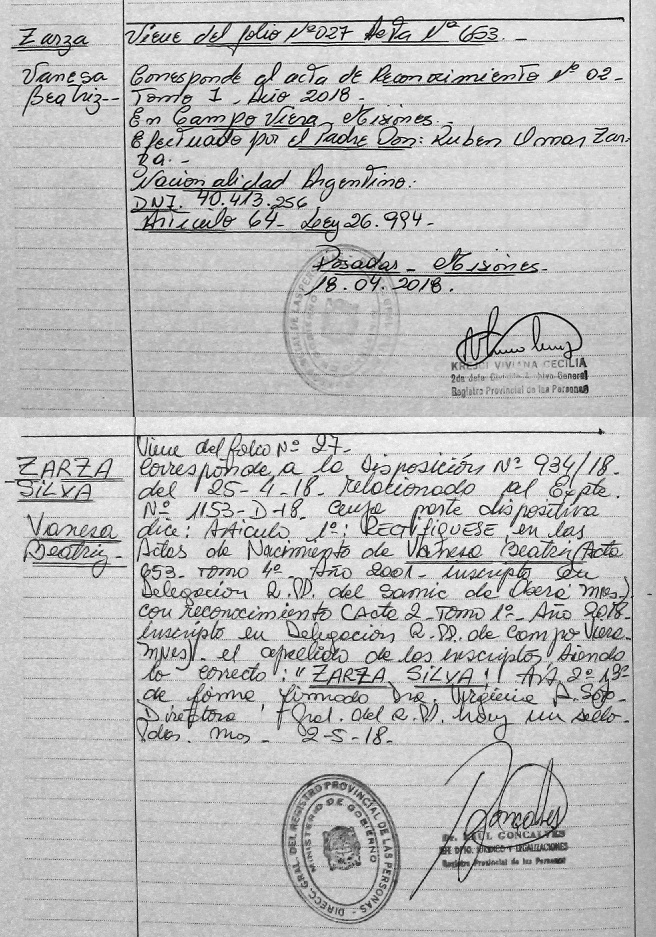 Zarza
Vanesa
Beatriz--
Viene del folio Nº 027 Acta Nº 653.-
Corresponde al acta de Reconocimiento Nº 02-
Tomo 1, Año 2018-
En Campo Viera, Misiones.-
Efectuado por el Padre Don: Ruben Omar Zar-
za.-
Nacionalidad Argentino:
DNI. 40.413.256
Articulo 64- Ley 26.994-
Posadas - Misiones-
18.04.2018.
KREJCI VIVIANA CECILIA
2da Jefa Archivo General
Registro Provincial de las Personas
ZARZA
SILVA
Vanesa
Beatriz-
Viene del folio Nº 27-
Corresponde a la Disposición Nº 934/18-
del 25-4-18- relacionado al Expte.
Nº 1153-D-18 cuya parte dispositiva
dice: Articulo 1º: RECTIFIQUESE, en las
Actas de Nacimiento de Vanesa Beatriz (Acta
653- Tomo 4º- Año 2001- inscripta en
Delegacion R.PP. del Samic de Oberá Mnes-)
con reconocimiento (Acta 2- Tomo 1º- Año 2018-
inscripto en Delegacion R.PP. de Campo Viera-
Mnes)- el apellido de los inscriptos siendo
lo correcto: "ZARZA SILVA" Art 2º
de forma firmado Dra. Virginia A.
Directora Gral. del R.PP. hay un sello-
Pdas. Mnes- 2-5-18.-
DIRECC. GRAL. DEL REGISTRO PROVINCIAL DE LAS PERSONAS
MINISTERIO DE GOBIERNO
Dr. RAUL GONCALVES
JEFE DPTO. JURIDICO Y LEGALIZACIONES
Registro Provincial de las Personas